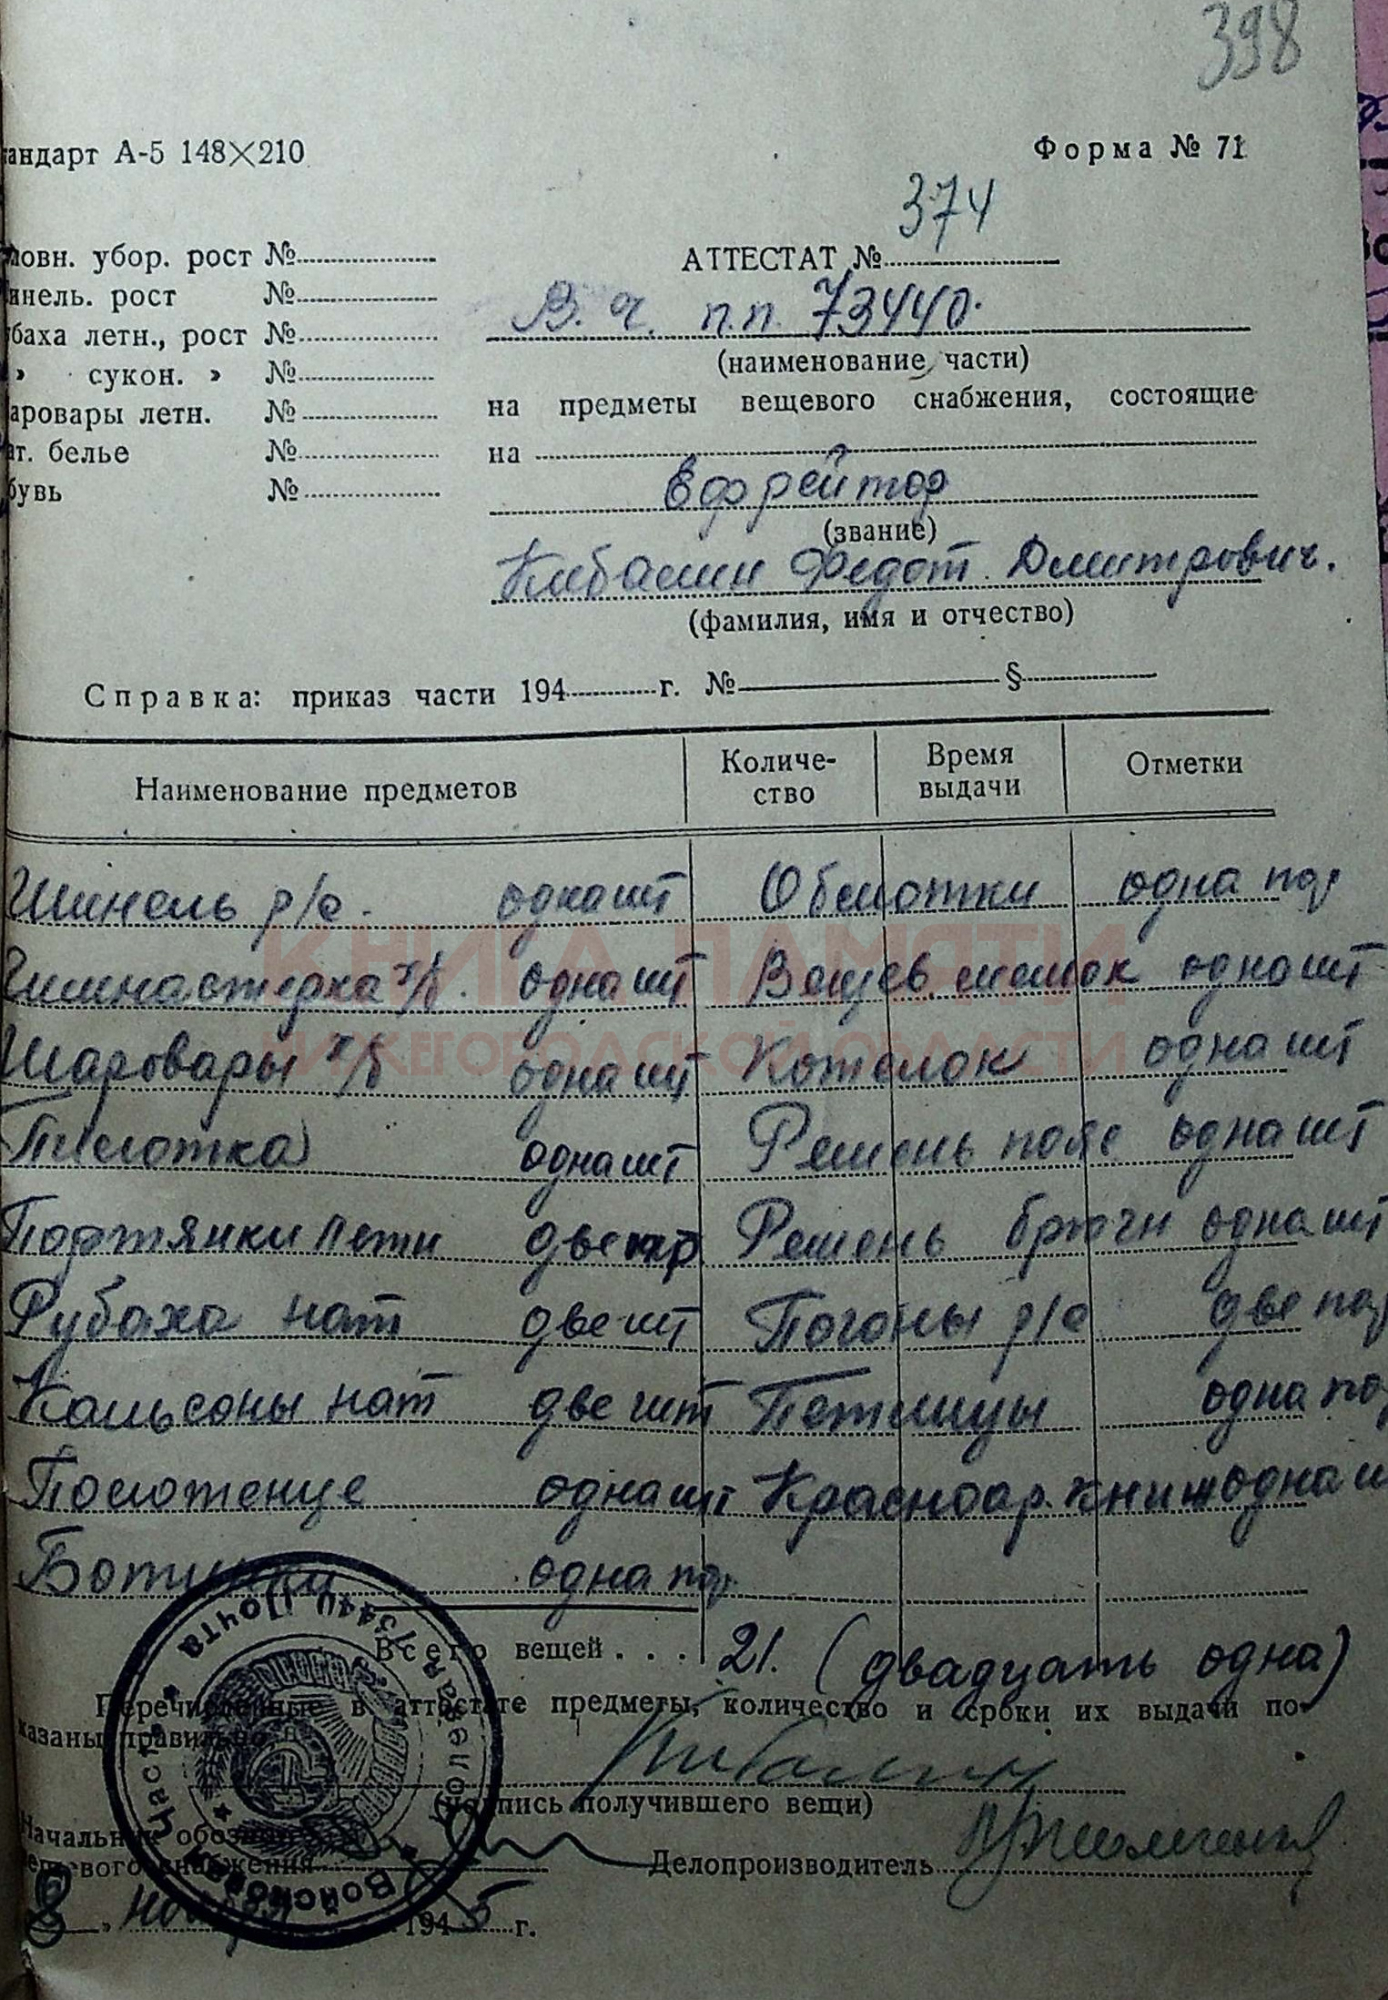 398
тандарт А-5 148×210
Форма № 71
АТТЕСТАТ № 374
ловн. убор. рост №
инель. рост №
баха летн., рост №
» сукон. » №
аровары летн. №
ат. белье №
бувь №
В. ч. п.п. 73440.
(наименование части)
на предметы вещевого снабжения, состоящие
на
Ефрейтор
(звание)
Кибалин Федот Дмитрович.
(фамилия, имя и отчество)
Справка: приказ части 194 г. № §
Наименование предметов Количе-ство Время выдачи Отметки
Шинель р/с. одна шт Обмотки одна пар
Гимнастерка х/б. одна шт Вещев. мешок одна шт
Шаровары х/б одна шт Котелок одна шт
Пилотка одна шт Ремень пояс одна шт
Портянки летн две пар Ремень брючн одна шт
Рубаха нат две шт Погоны р/с две пар
Кальсоны нат две шт Петлицы одна пар
Полотенце одна шт Красноар. книж одна ш
Ботинки одна пар.
Всего вещей . . . 21. (двадцать одна)
Перечисленные в аттестате предметы, количество и сроки их выдачи по-
казаны правильно.
Кибалин
(подпись получившего вещи)
Начальник обозно-
вещевого снабжения
Делопроизводитель
8 " ноября 1945 г.
Войсковая Часть Полевая Почта 73440
КНИГА ПАМЯТИ
НИЖЕГОРОДСКОЙ ОБЛАСТИ